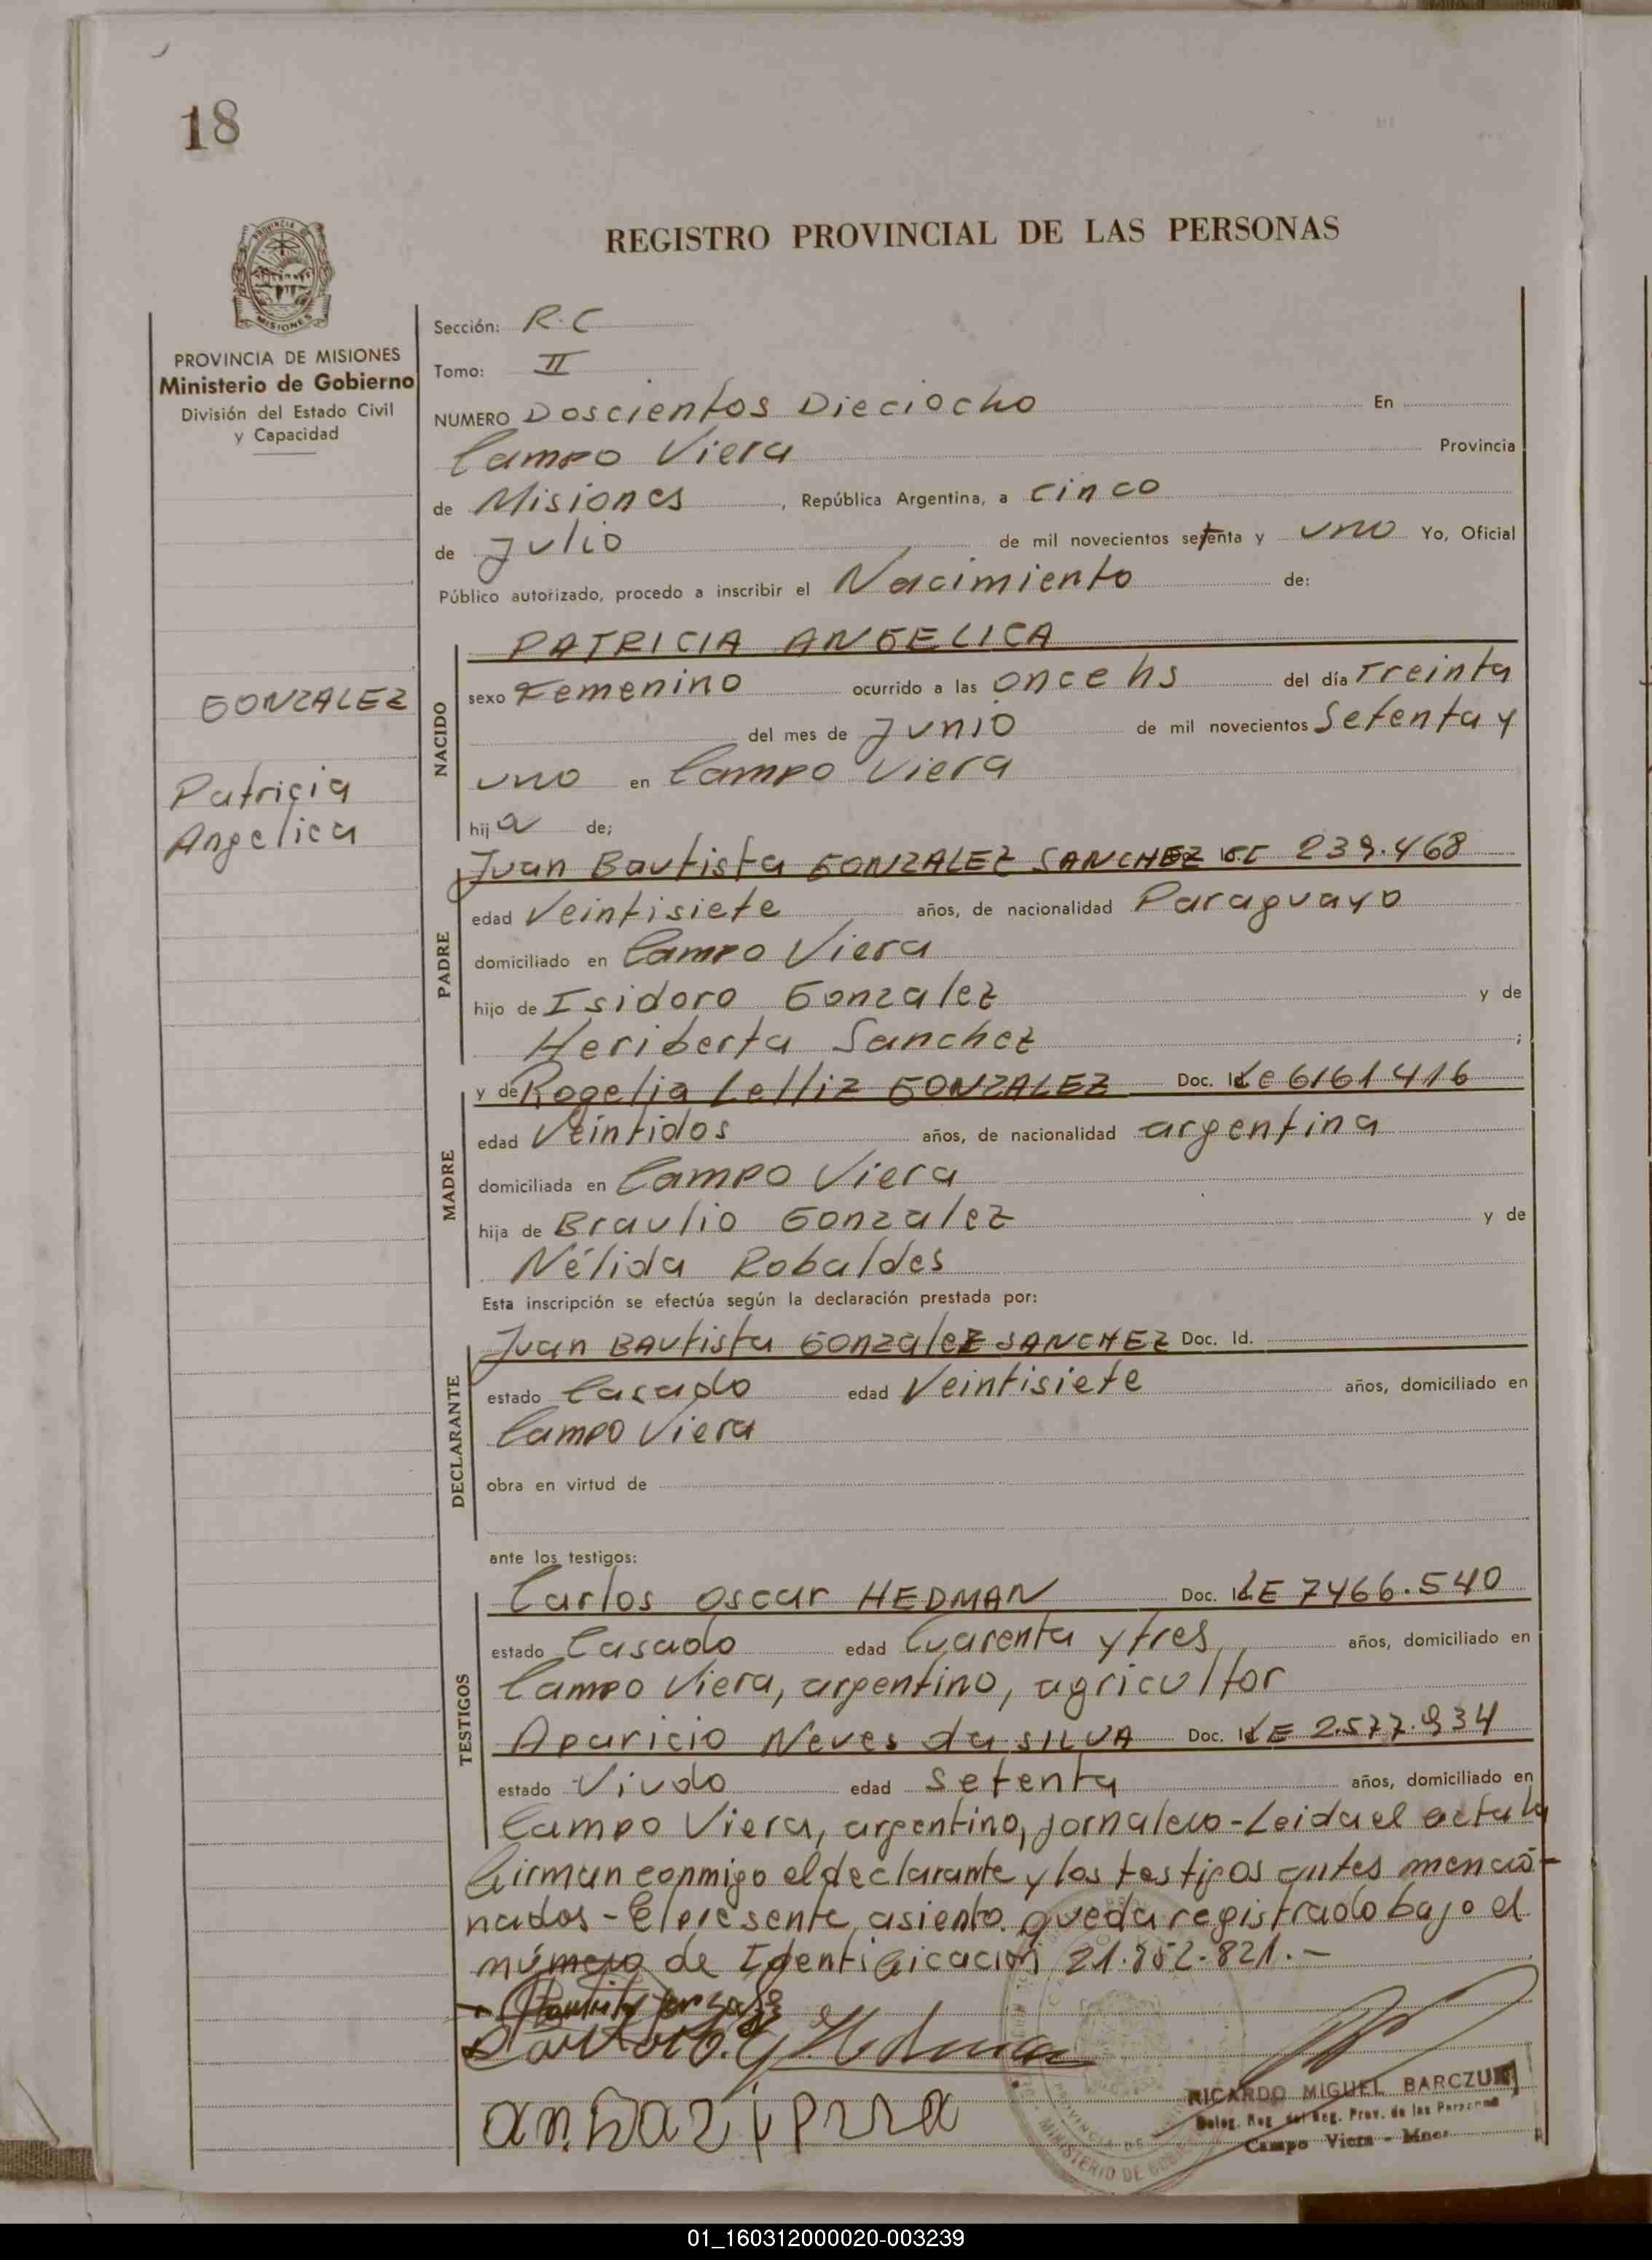 18
REGISTRO PROVINCIAL DE LAS PERSONAS
PROVINCIA DE MISIONES
Ministerio de Gobierno
División del Estado Civil
y Capacidad
GONZALEZ
Patricia
Angelica
Sección: R.C
Tomo: II
NUMERO Doscientos Dieciocho En
Campo Viera Provincia
de Misiones, República Argentina, a cinco
de Julio de mil novecientos setenta y uno Yo, Oficial
Público autorizado, procedo a inscribir el Nacimiento de:
NACIDO
PATRICIA ANGELICA
sexo Femenino ocurrido a las once hs del día Treinta
del mes de Junio de mil novecientos Setenta y
uno en Campo Viera
hija de;
PADRE
Juan Bautista GONZALEZ SANCHEZ 239.468
edad Veintisiete años, de nacionalidad Paraguayo
domiciliado en Campo Viera
hijo de Isidoro Gonzalez y de
Heriberta Sanchez ;
MADRE
y de Rogelia Lelliz GONZALEZ Doc. 6161416
edad Veintidos años, de nacionalidad argentina
domiciliada en Campo Viera
hija de Braulio Gonzalez y de
Nélida Robaldes
Esta inscripción se efectúa según la declaración prestada por:
DECLARANTE
Juan BAutista Gonzalez SANCHEZ Doc. Id.
estado Casado edad Veintisiete años, domiciliado en
Campo Viera
obra en virtud de
ante los testigos:
TESTIGOS
Carlos Oscar HEDMAN Doc. LE 7466.540
estado Casado edad Cuarenta y tres años, domiciliado en
Campo Viera, argentino, agricultor
Aparicio Neves da SILVA Doc. LE 2.577.934
estado Viudo edad Setenta años, domiciliado en
Campo Viera, argentino, jornalero - Leida el acta la
firman conmigo el declarante y los testigos antes mencio-
nados - El presente asiento queda registrado bajo el
número de Identificación 21.852.821.-
RICARDO MIGUEL BARCZUK
Deleg. Reg. del Reg. Prov. de las Personas
Campo Viera - Mnes
MINISTERIO DE
01_160312000020-003239